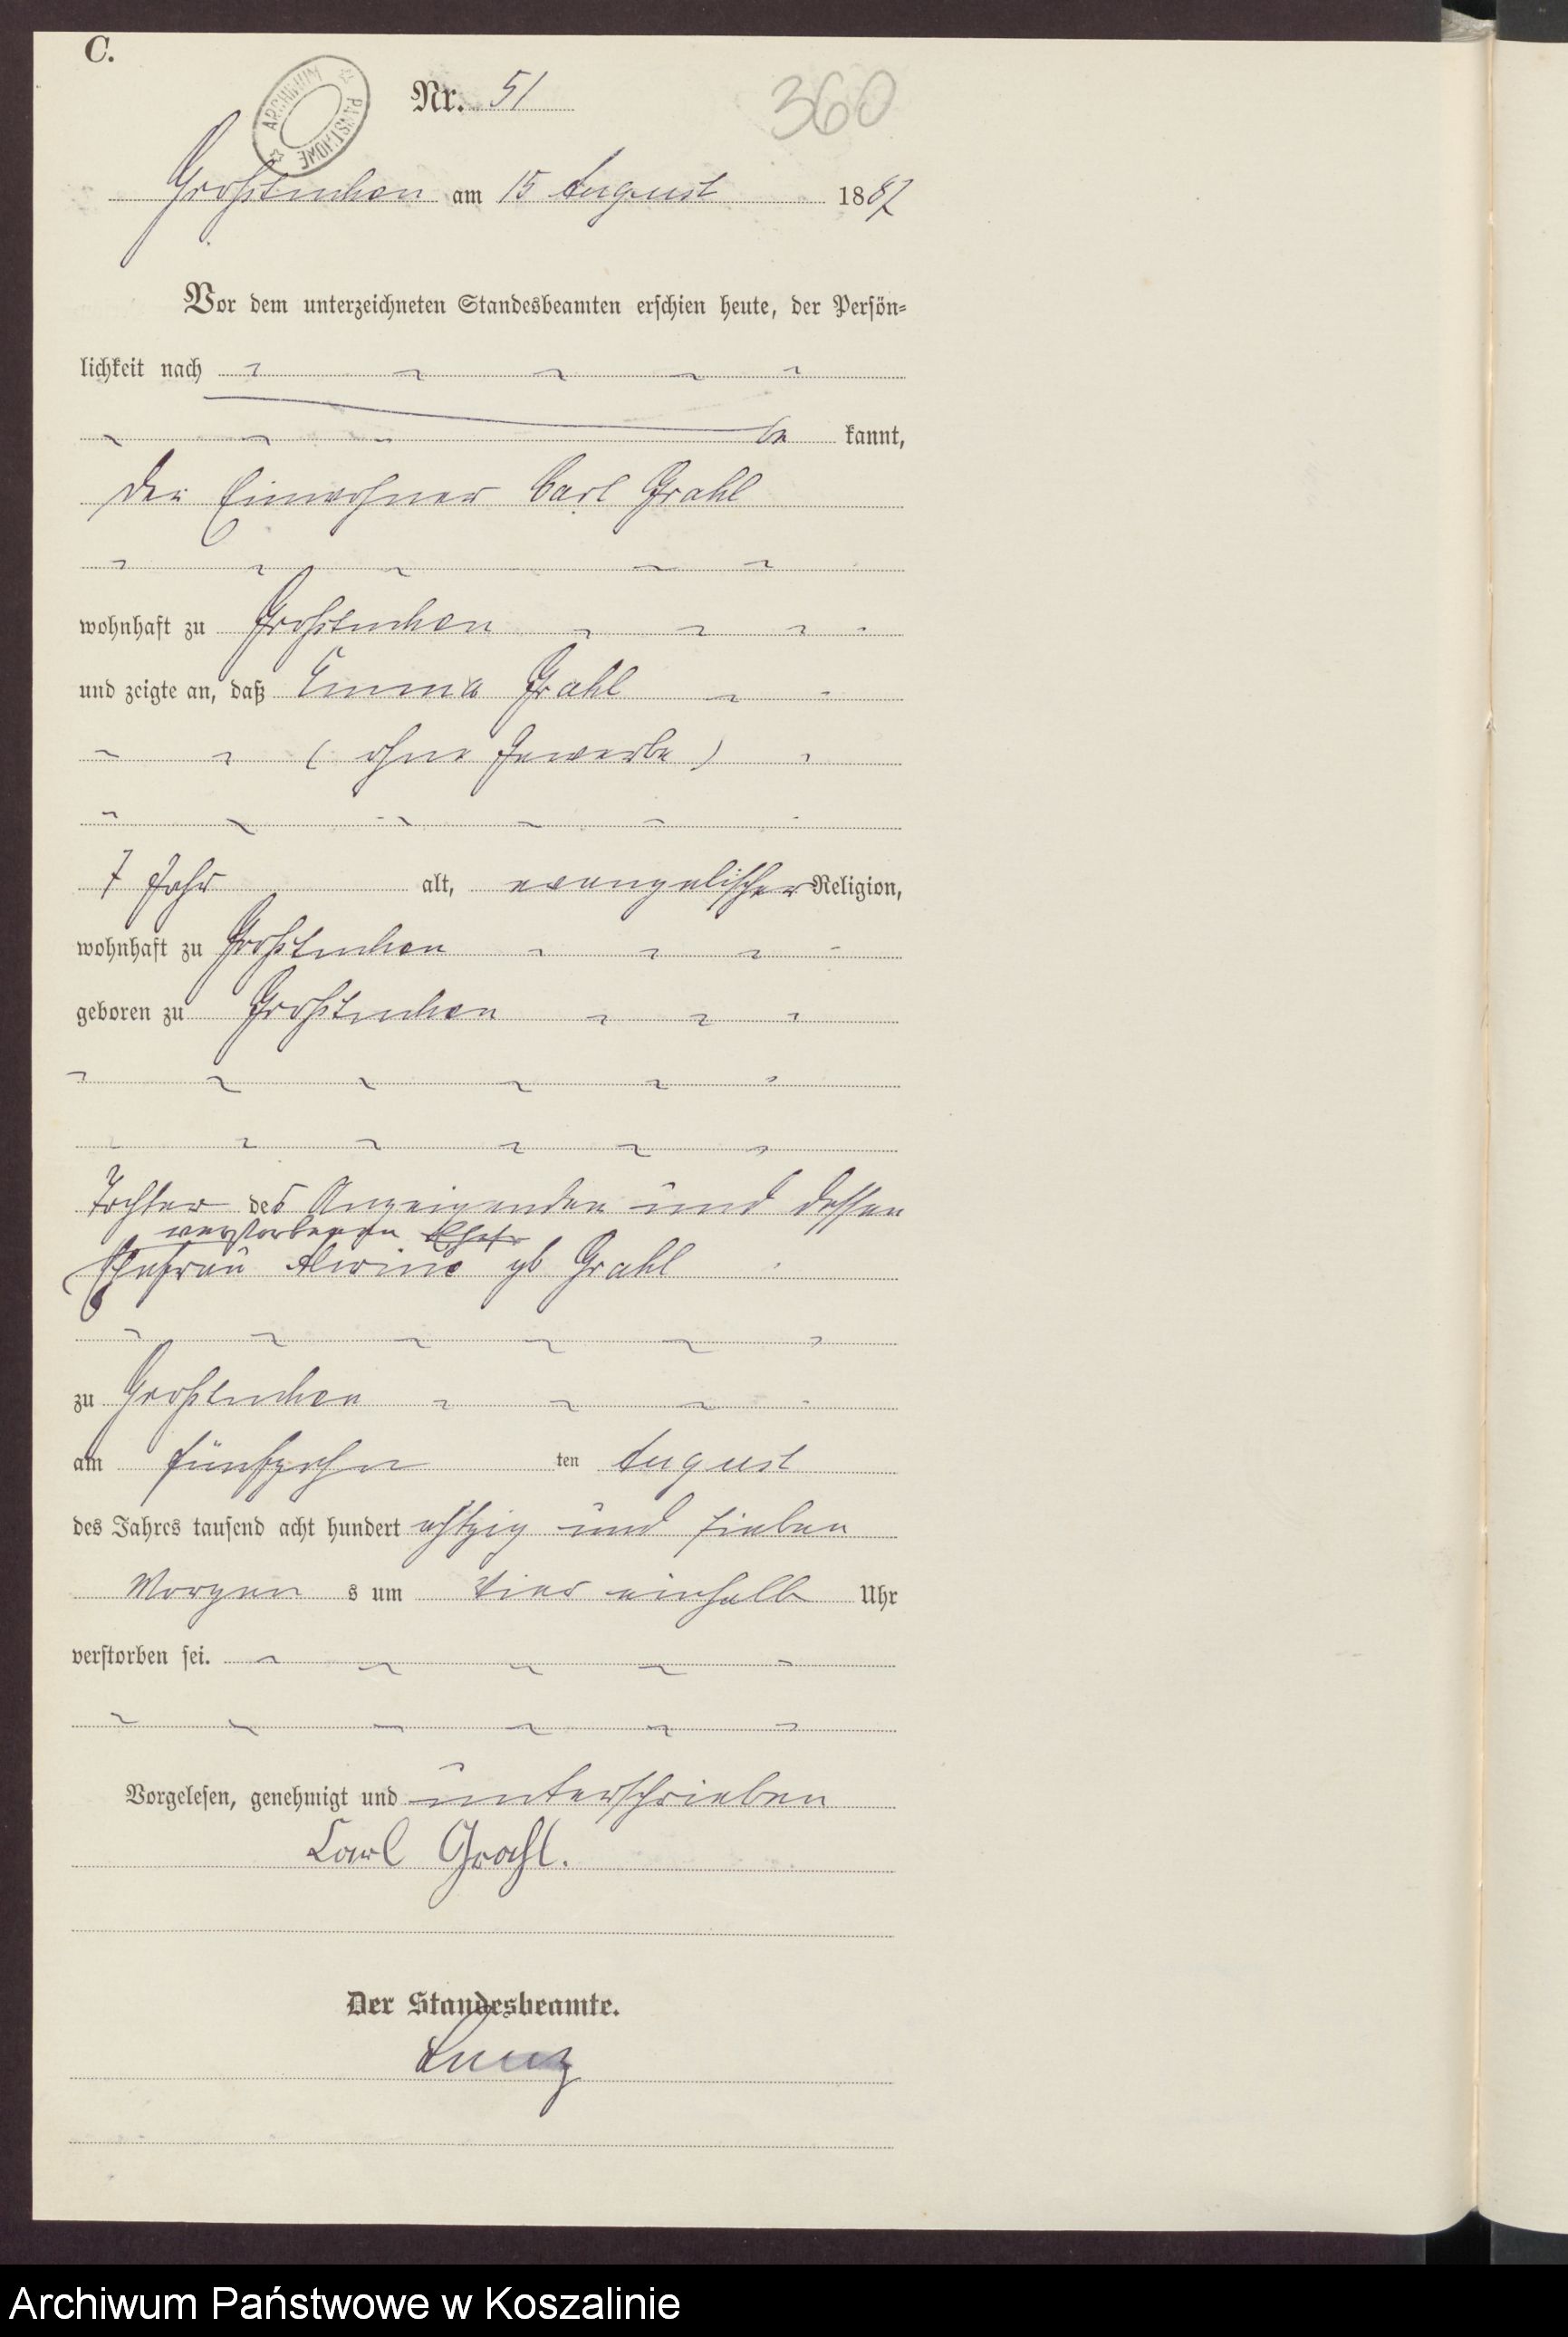 C.
ARCHIWUM PAŃSTWOWE
Nr. 51
360
Großtuchen am 15 August 1887
Vor dem unterzeichneten Standesbeamten erschien heute, der Persön-
lichkeit nach
be kannt,
der Einwohner Carl Grahl
wohnhaft zu Großtuchen
und zeigte an, daß Emma Grahl
( ohne Gewerbe )
7 Jahr alt, evangelischer Religion,
wohnhaft zu Großtuchen
geboren zu Großtuchen
Tochter des Anzeigenden und dessen
verstorbenen Ehefr
Ehefrau Alwine gb Grahl
zu Großtuchen
am fünfzehn ten August
des Jahres tausend acht hundert achtzig und sieben
Morgen s um vier einhalb Uhr
verstorben sei.
Vorgelesen, genehmigt und unterschrieben
Carl Grahl.
Der Standesbeamte.
Archiwum Państwowe w Koszalinie